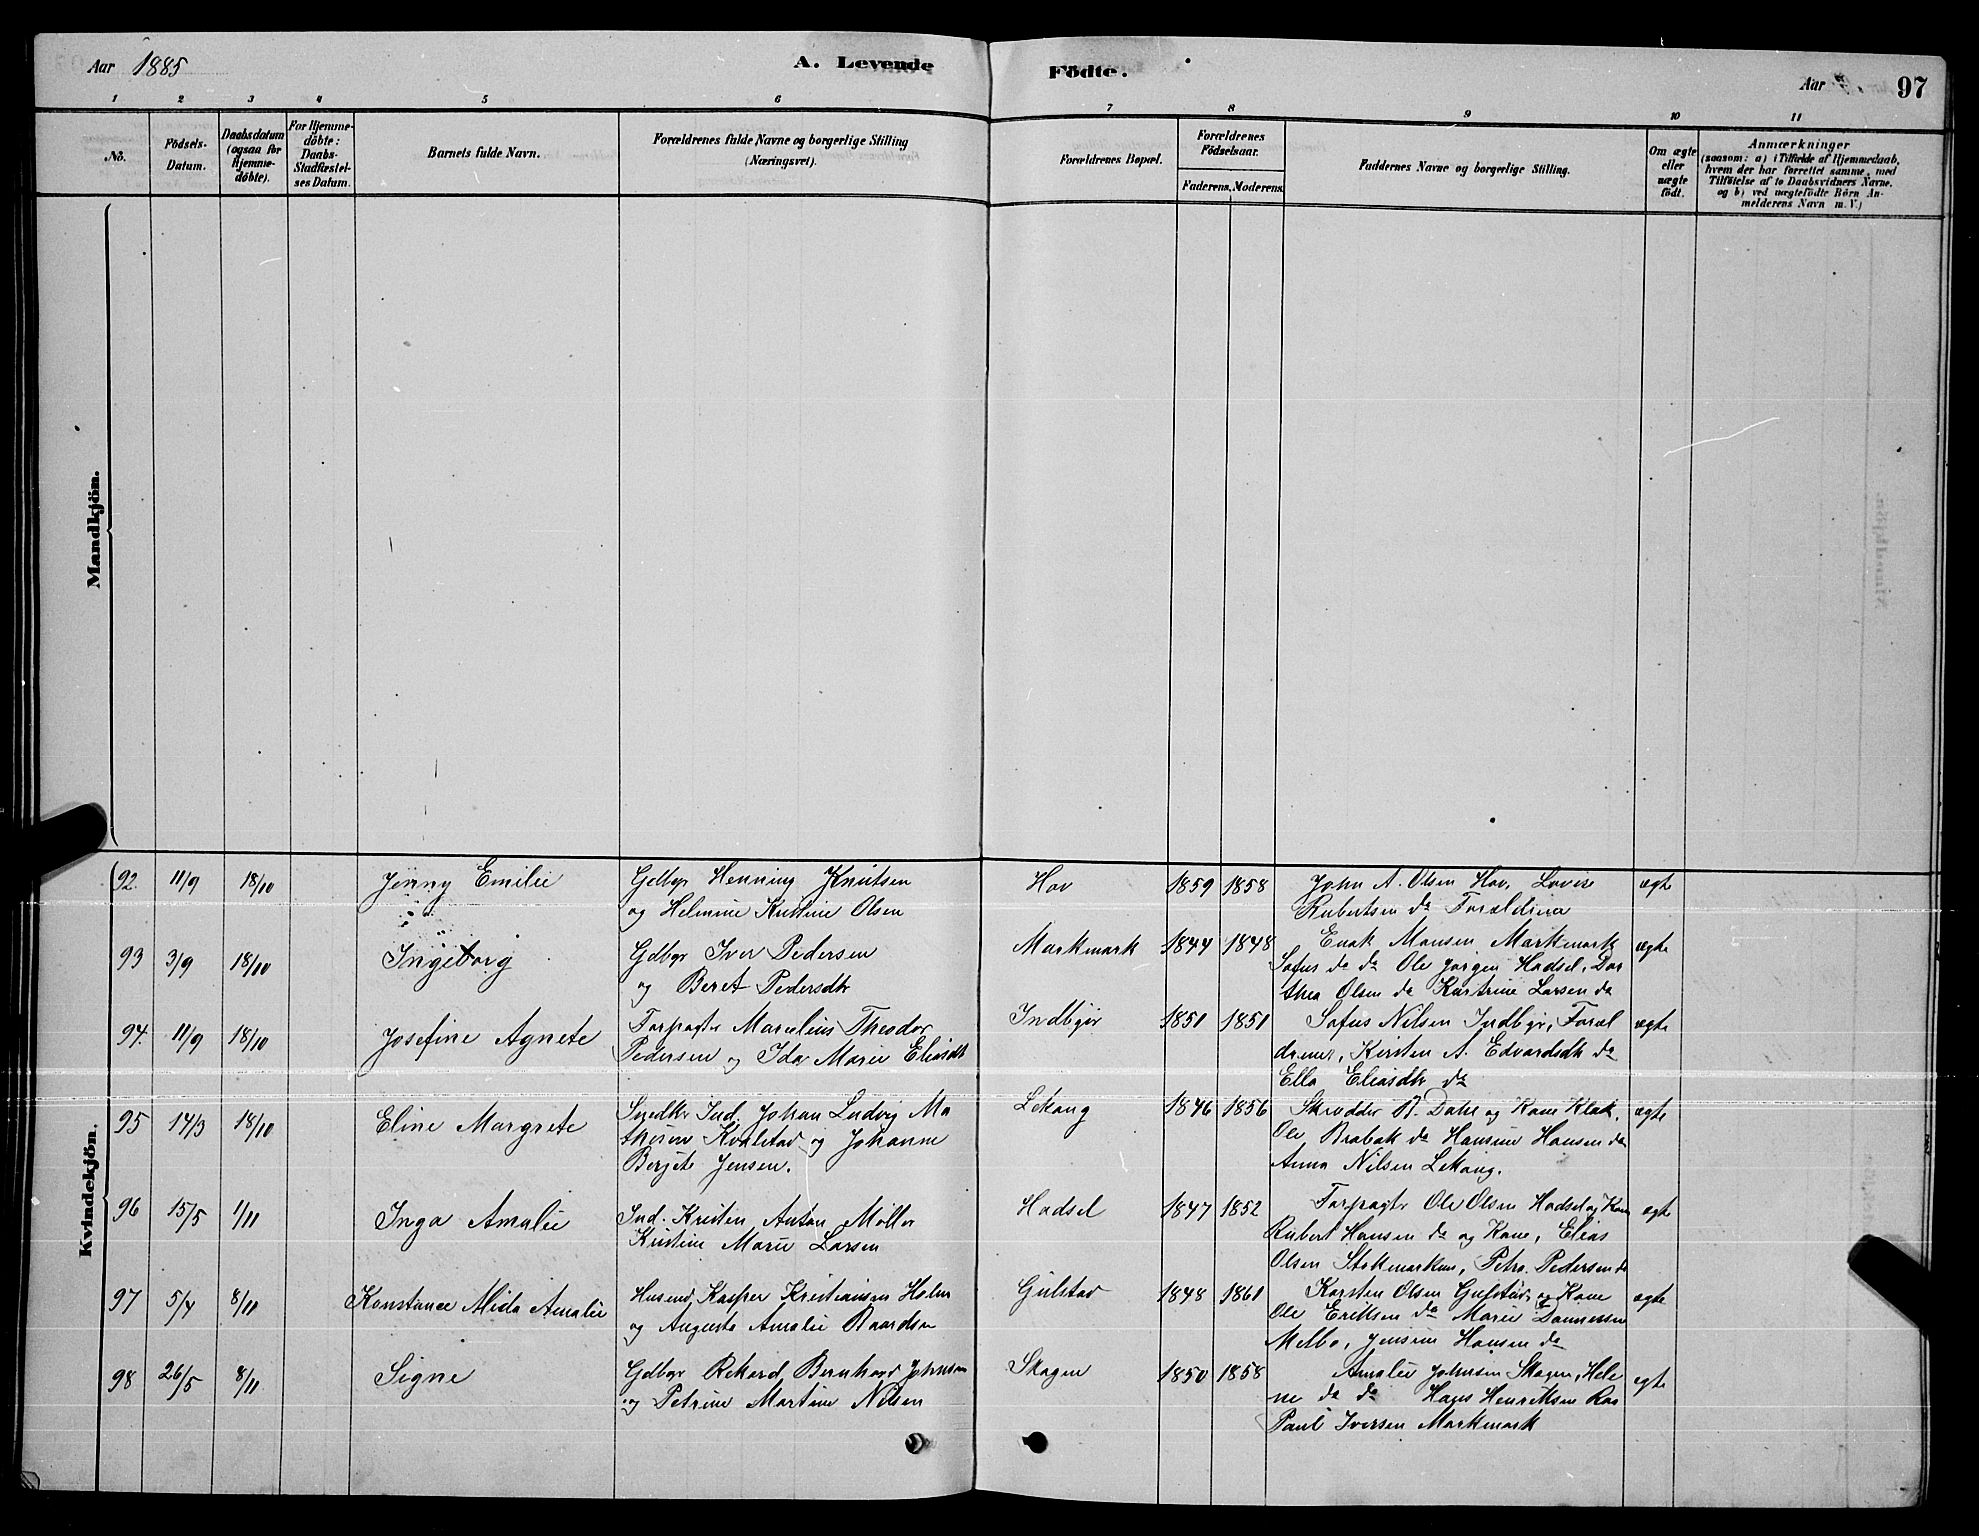 Aar 1885
A. Levende
Födte.
Aar
97
1 2 3 4 5 6 7 8 9 10 11
No.
Födsels-
Datum.
Daabsdatum
(ogsaa for
Hjemme-
döbte).
For Hjemme-
döbte:
Daabs-
Stadfæstel-
ses Datum.
Barnets fulde Navn.
Forældrenes fulde Navne og borgerlige Stilling
(Næringsvei).
Forældrenes Bopæl.
Forældrenes
Födselsaar.
Faderens. Moderens.
Faddernes Navne og borgerlige Stilling.
Om ægte
eller
uægte
födt.
Anmærkninger
(saasom: a) i Tilfælde af Hjemmedaab,
hvem der har forrettet samme, med
Tilföielse af to Daabsvidners Navne,
og b) ved uægtefödte Börn An-
melderens Navn m. V.)
Mandkjön.
Kvindekjön.
92. 11/9 18/10 Jenny Emilie Gdbgr Henning Knutsen Hov 1859 1858 John A. Olsen Hov, Lovise ægte
og Helmine Kristine Olsen Rubertsen do Forældrene
93 3/9 18/10 Ingeborg Gdbgr Iver Pedersen Markmark 1844 1848 Enok Monsen Markmark ægte
og Beret Pedersdtr Sofus do do Ole Jörgen Hadsel, Dor
thea Olsen do Katrine Larsen do
94. 11/9 18/10 Josefine Agnete Forpagtr Marcelius Theodor Indbgir 1851 1851 Sofus Nilsen Indbgir, Foræl ægte
Pedersen og Ida Marie Eliasdtr drene, Kirsten A. Edvardsdtr do
Ella Eliasdtr do
95 14/3 18/10 Eline Margrete Snedkr Ind. Johan Ludvig Ma Lekang 1846 1856 Skrædder B. Dahl og Kone Klak, ægte
thisen Kvalstad og Johanne Ole Brobak do Hansine Hansen do
Bergete Jensen. Anna Nilsen Lekang.
96 15/5 1/11 Inga Amalie Ind. Kristen Anton Möller Hadsel 1847 1852 Forpagtr Ole Olsen Hadsel og Kone ægte
Kristine Marie Larsen Rubert Hansen do og Kone, Elias
Olsen Stokmarknes, Petra Pedersen do
97 5/4 8/11 Konstance Alida Amalie Husmd Kasper Kristiansen Holm Gulstad 1848 1861 Karsten Olsen Gulstad og Kone ægte
og Augusta Amalie Baardsen Ole Eriksen do Marie Dannessen
Melbo, Jensine Hansen do
98 26/5 8/11 Signe Gdbgr Rikard Bernhard Johnsen Skagen 1850 1858 Amalie Johnsen Skagen, Hele ægte
og Petrine Martine Nilsen ne do do Hans Henriksen Ras
Paul Iversen Markmark